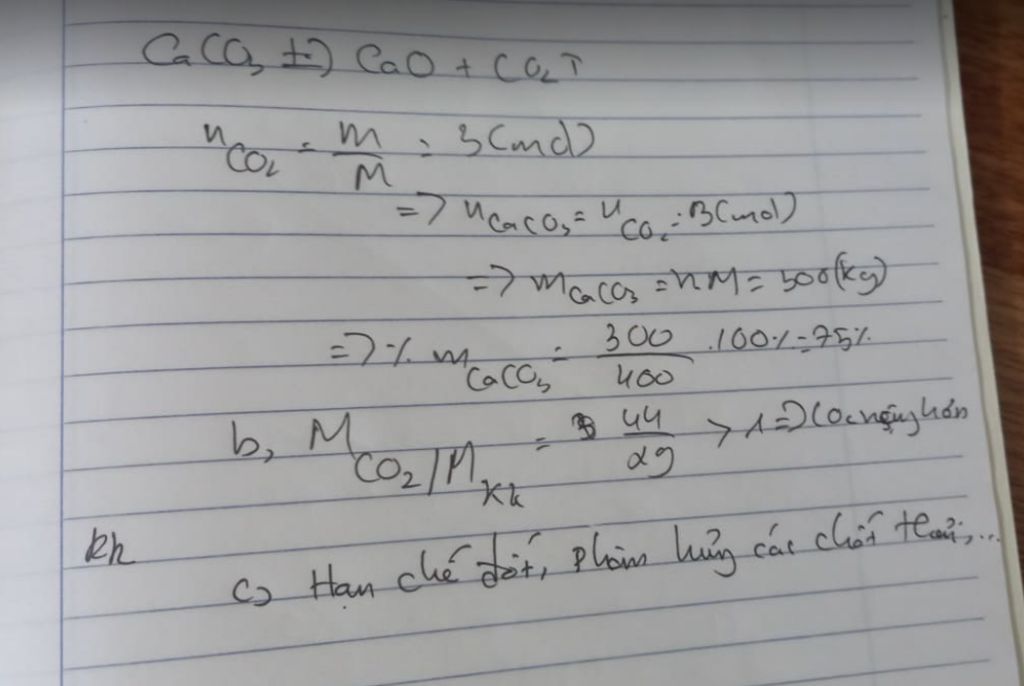 CaCO₃ t°→ CaO + CO₂↑
n CO₂ = m/M = 3 (mol)
=> n CaCO₃ = n CO₂ = 3 (mol)
=> m CaCO₃ = nM = 300 (kg)
=> % m CaCO₃ = 300/400 .100% = 75%
b, M CO₂ / M kk = 44/29 > 1 => CO₂ nặng hơn
kk
c) Hạn chế đốt, các chất thải,...